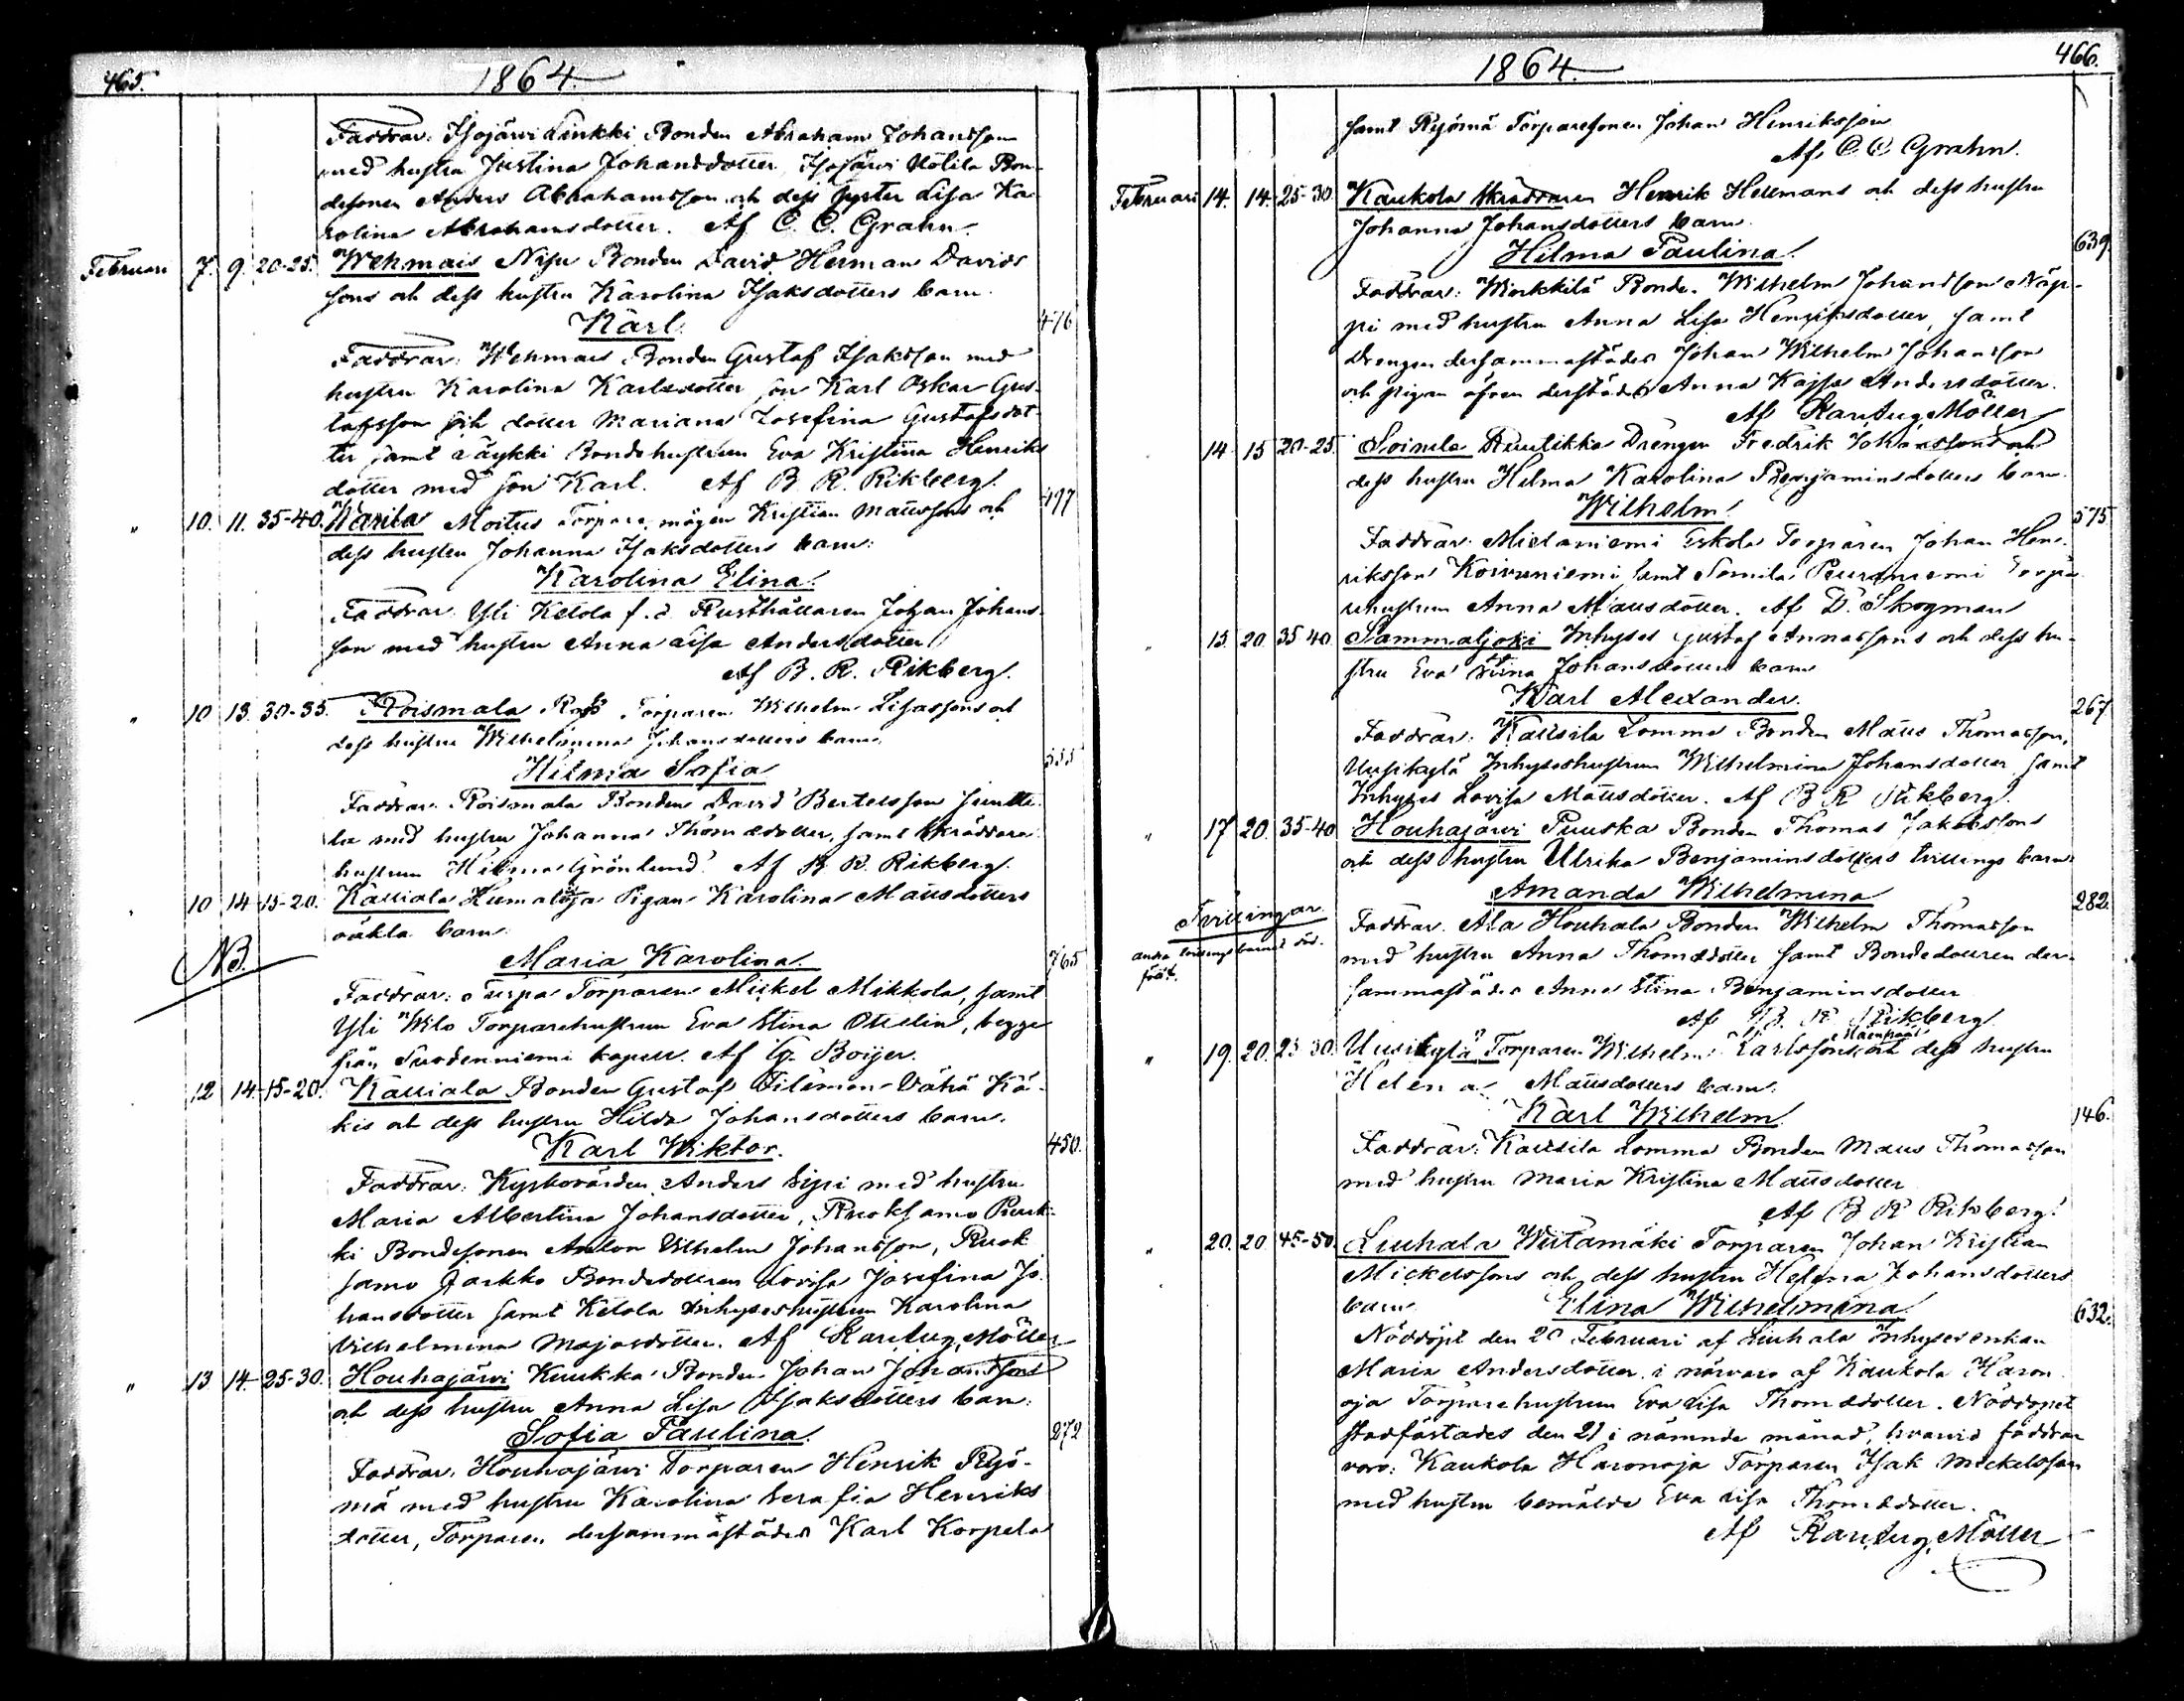 465.
1864
Faddrar: Isojärvi Linkki Bonden Abraham Johansson
med hustru Justina Johansdotter, Isojärvi Uotila Bon-
desonen Anders Abrahamsson och dess syster Lisa Ka-
rolina Abrahamsdotter. Af C. C. Grahn.
Februari 7. 9. 20-25. Wehmais Nisu Bonden David Herman Davids
sons och dess hustru Karolina Isaksdotters barn.
Karl. 476
Faddrar: Wehmais Bonden Gustaf Isaksson med
hustru Karolina Karlsdotter, son Karl Oskar Gus-
tafsson och dotter Mariana Josefina Gustafsdot-
ter samt Bondehustrun Eva Kristina Henriks
dotter med son Karl. Af B. R. Rikberg. 497
" 10. 11. 35-40. Moitus Torpare mågen Kristian Mattssons och
dess hustru Johanna Isaksdotters barn:
Karolina Elina.
Faddrar: Yli Ketola f. d. Rusthållaren Johan Johans-
son med hustru Anna Lisa Andersdotter
Af B. R. Rikberg.
" 10 13. 30-35. Roismala Torparen Wilhelm Lisassons och
dess hustru Wilhelmina Johansdotters barn.
Hilma Sofia 555
Faddrar: Roismala Bonden David Bertelsson Juntti-
la med hustru Johanna Thomædotter, samt Skräddare
hustrun Hilma Grönlund. Af B. R. Rikberg.
" 10 14 15-20. Kalliala Humaloja Pigan Karolina Mattsdotters
oäkta barn.
NB.
Maria Karolina. 765
Faddrar: Torparen Mickel Mikkola, samt
Yli Wilo Torparehustrun Eva Stina Ottelin, begge
från Suodenniemi kapell. Af G. Boijer.
12 14 15-20. Kalliala Bonden Gustaf Filemon Vähä Kö-
kis och dess hustru Hilda Johansdotters barn.
Karl Wiktor. 450.
Faddrar: Kyrkovärden Anders Sipi med hustru
Maria Albertina Johansdotter, Ruoksamo Pirtt-
ki Bondesonen Anton Vilhelm Johansson, Ruok
samo Jaakko Bondedottren Lovisa Josefina Jo-
hansdotter samt Ketola Inhyseshustrun Karolina
Vilhelmina Majasdotter. Af Karl Aug. Möller
" 13 14. 25-30. Houhajärvi Kuukka Bonden Johan Johanssons
och dess hustru Anna Lisa Isaksdotters barn:
Sofia Paulina. 272
Faddrar: Houhajärvi Torparen Henrik Ryö-
mä med hustru Karolina Serafia Henriks
dotter, Torparen dersammastädes Karl Korpela
466.
1864.
samt Ryömä Torparesonen Johan Henriksson
Af C. C. Grahn.
Februari 14. 14. 25-30. Kaukola Skräddaren Henrik Hellmans och dess hustru
Johanna Johansdotters barn.
Hilma Paulina. 639
Faddrar: Wirkkilä Bonden Wilhelm Johansson Näp-
pi med hustru Anna Lisa Henriksdotter, samt
Drengen dersammastädes Johan Wilhelm Johansson
och pigan äfven derstädes Anna Kajsa Andersdotter.
Af Karl Aug. Möller
14 15 20-25. Soinila Ruutikka Drengen Fredrik Johanssons och
dess hustru Hilma Karolina Benjaminsdotters barn.
Wilhelm. 575
Faddrar: Mielaniemi Eskola Torparen Johan Hen-
riksson Koivuniemi samt Torpa-
rehustrun Anna Mattsdotter. Af D. Skogman
" 15 20. 35 40 Sammaljoki Inhyses Gustaf Annassons och dess hu-
stru Eva Stina Johansdotters barn
Karl Alexander. 267
Faddrar: Kallsila Lomma Bonden Matts Thomasson,
Uusikylä Inhyseshustrun Wilhelmina Johansdotter samt
Inhyses Lovisa Mattsdotter. Af B R Rikberg.
" 17 20. 35-40 Houhajärvi Puuska Bonden Thomas Jakobssons
och dess hustru Ulrika Benjaminsdotters tvillings barn:
Amanda Wilhelmina 282.
Tvillingar
andra tvillingsbarnet död-
född.
Faddrar: Ala Houhala Bonden Wilhelm Thomasson
med hustru Anna Thomædotter samt Bondedottren der-
sammastädes Anna Stina Benjaminsdotter
Af B. R Rikberg.
" 19. 20. 25 30. Uusikylä Torparen Wilhelm Karlssons och dess hustru
Helena Mattsdotters barn:
Karl Wilhelm. 146.
Faddrar: Kallsila Lomma Bonden Matts Thomasson
med hustru Maria Kristina Mattsdotter
Af B R Rikberg.
" 20. 20 45-50 Liuhala Wiitamäki Torparen Johan Kristian
Mickelssons och dess hustru Helena Johansdotters
barn. Elina Wilhelmina 632.
Nöddöpt den 20 Februari af Liuhala Inhysesenkan
Maria Andersdotter i närvaro af Kaukola Haron
oja Torparehustrun Eva Lisa Thomædotter. Nöddopet
stadfästades den 21 i nämnde månad, hvarvid faddrar
voro: Kaukola Haronoja Torparen Isak Mickelsson
med hustru bemälde Eva Lisa Thomædotter.
Af Karl Aug. Möller